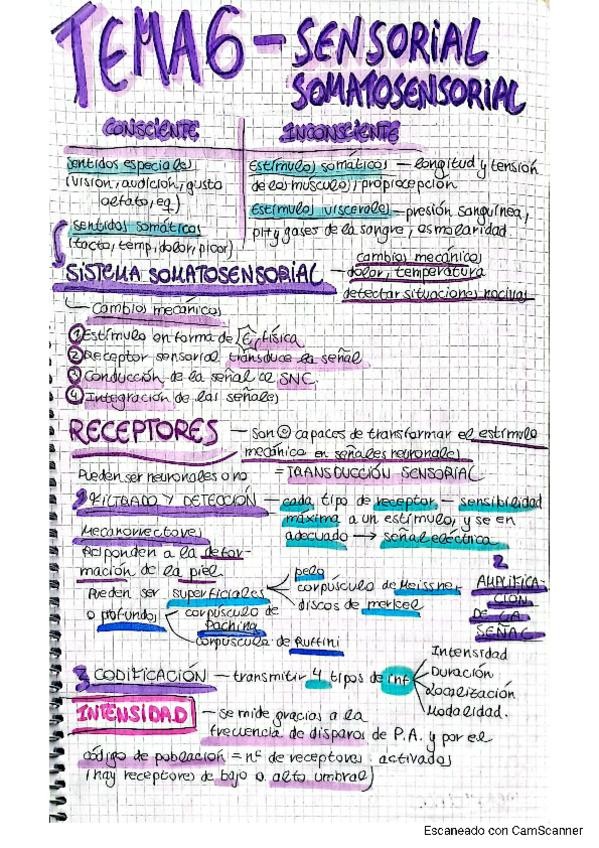 TEMA 6 - SENSORIAL
SOMATOSENSORIAL
CONSCIENTE
INCONSCIENTE
Sentidos especiales
(visión, audición, gusto
olfato, eq)
Sentidos somáticos
(tacto, temp, dolor, picor)
Estímulos somáticos — longitud y tensión
de los músculos, propiocepción
Estímulos viscerales — presión sanguínea,
pH y gases de la sangre, osmolaridad
SISTEMA SOMATOSENSORIAL
cambios mecánicos
dolor, temperatura
detectar situaciones nocivas
Cambios mecánicos
① Estímulo en forma de E física
② Receptor sensorial transduce la señal
③ Conducción de la señal al SNC.
④ Integración de las señales
RECEPTORES — Son capaces de transformar el estímulo
mecánico en señales neuronales
Pueden ser neuronales o no = TRANSDUCCIÓN SENSORIAL
FILTRADO Y DETECCIÓN — cada tipo de receptor — sensibilidad
máxima a un estímulo, y se en
adecuado → señal eléctrica
Responden a la defor-
mación de la piel.
Pueden ser superficiales
pelo
corpúsculo de Meissner
discos de merckel
o profundos
corpúsculo de
Pachina
corpúsculo de Ruffini
2
AMPLIFICA-
CIÓN
DE LA
SEÑAL
3 CODIFICACIÓN — transmitir 4 tipos de inf
Intensidad
Duración
Localización
Modalidad.
INTENSIDAD — se mide gracias a la
frecuencia de disparos de P.A. y por el
código de población = nº de receptores activados
(hay receptores de bajo o alto umbral)
Escaneado con CamScanner